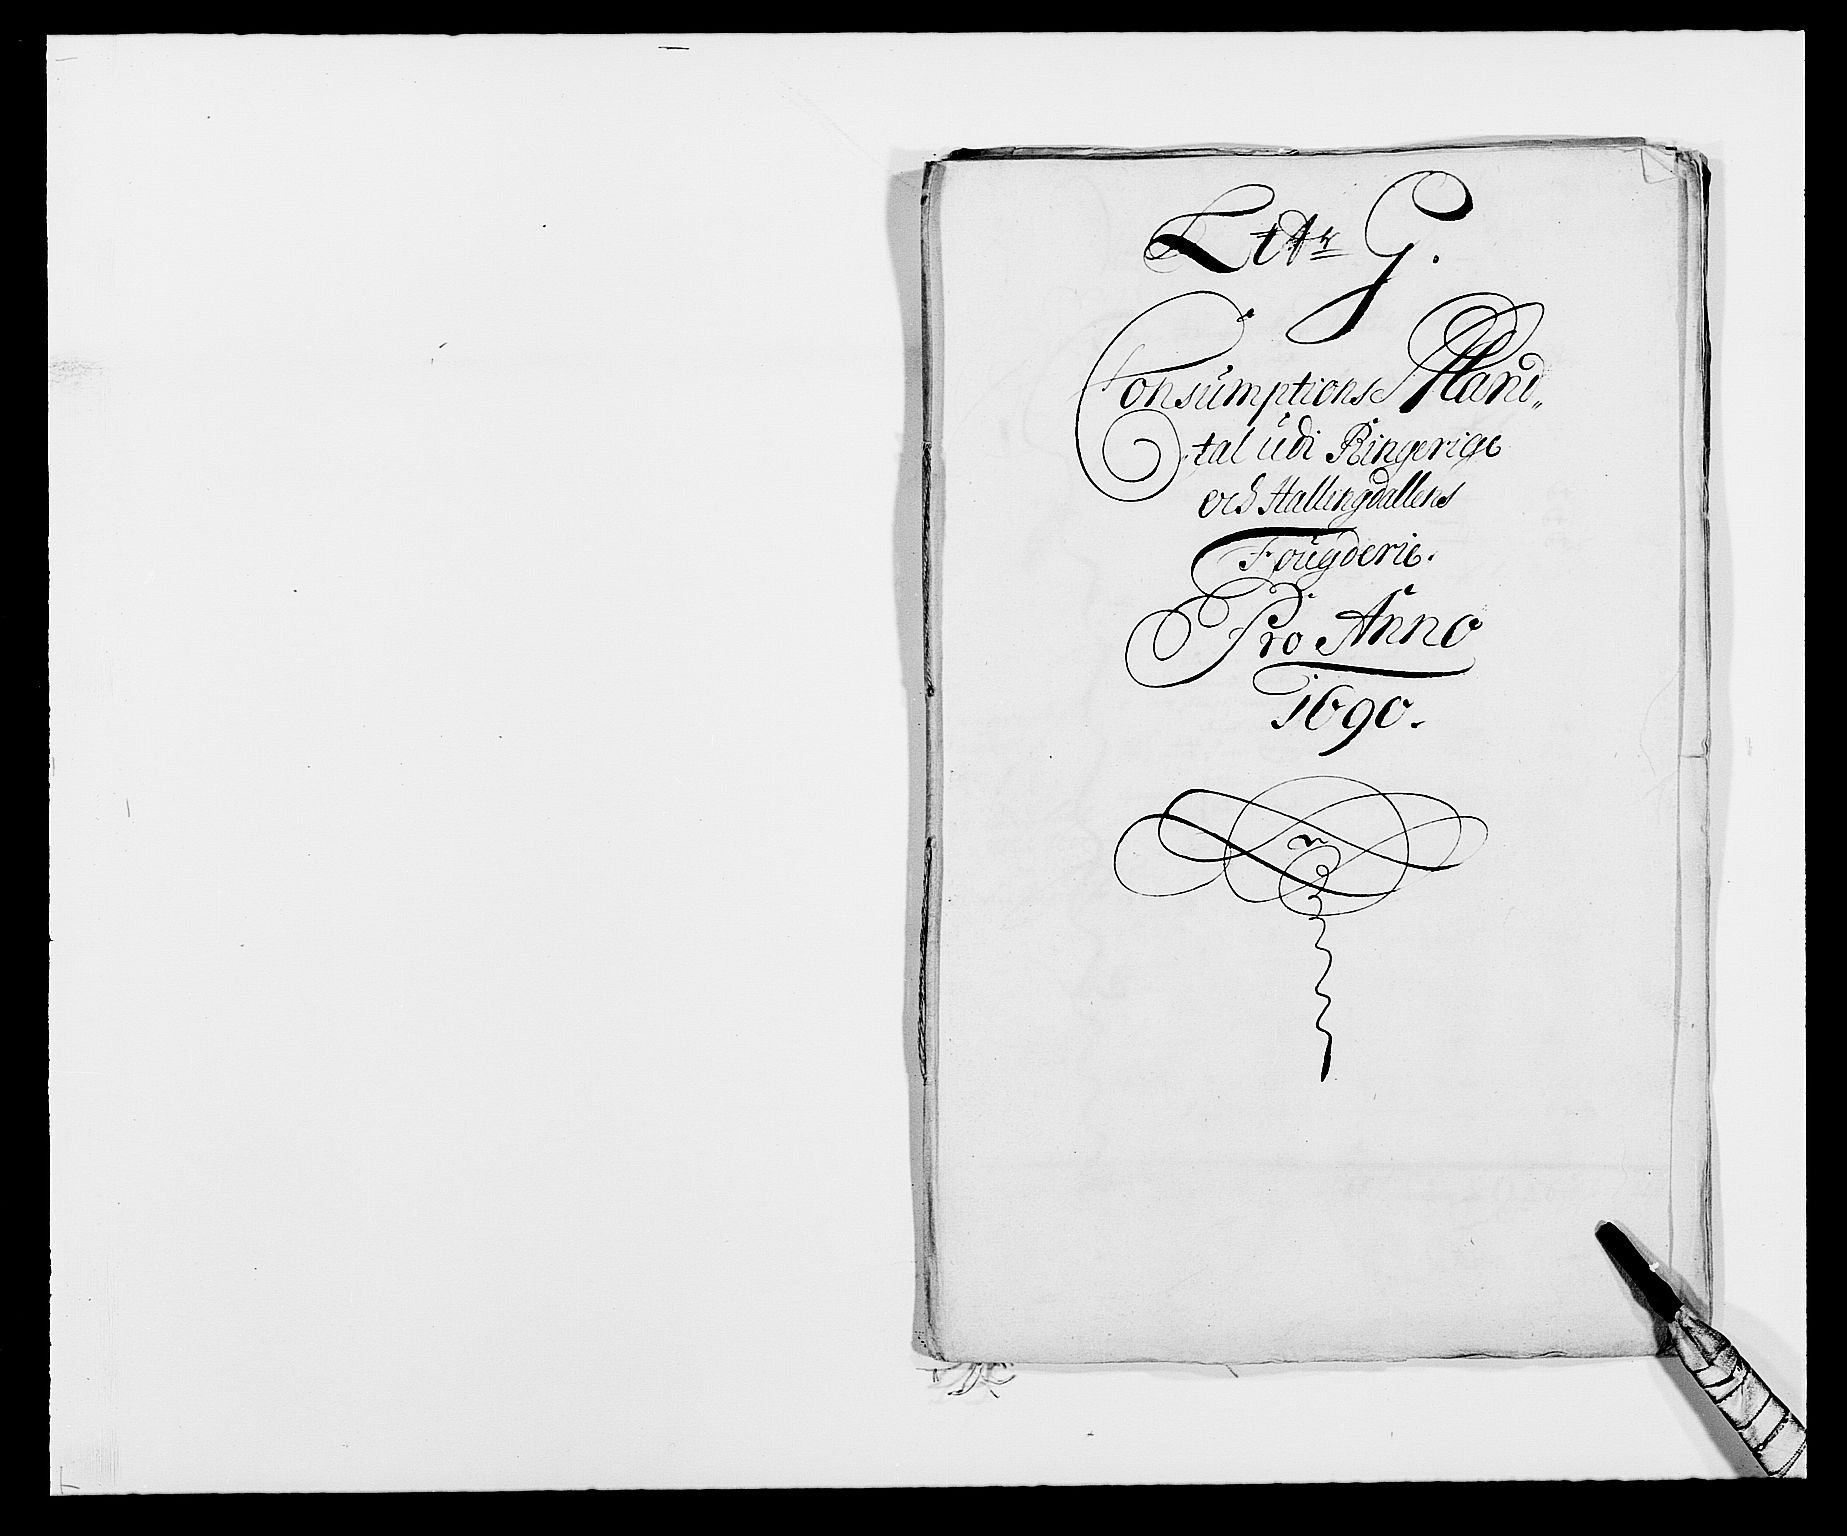 Littr G.
Consumptions Mand„
tal udi Ringerige
och Hallingdallens
Fougderie.
Pro Anno
1690.